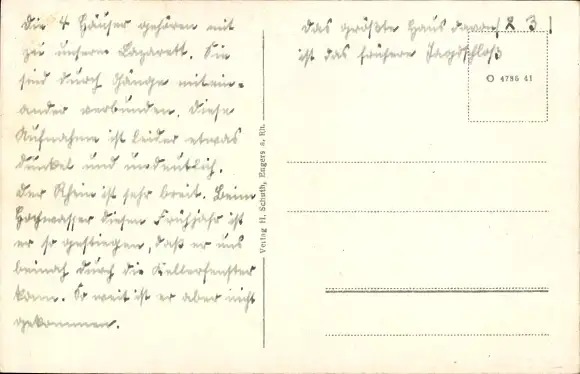 Die 4 Häuser gehören mit
zu unserm Lazarett. Sie
sind durch Gänge mitein-
ander verbunden. Diese
Aufnahme ist leider etwas
dunkel und undeutlich.
Der Rhein ist sehr breit. Beim
Hochwasser dieses Frühjahr ist
er so gestiegen, daß er uns
beinah durch die Kellerfenster
kam. So weit ist er aber nicht
gekommen.
Verlag H. Schuth, Engers a. Rh.
Das größte Haus davon
ist das frühere Jagdschloß
4786 41